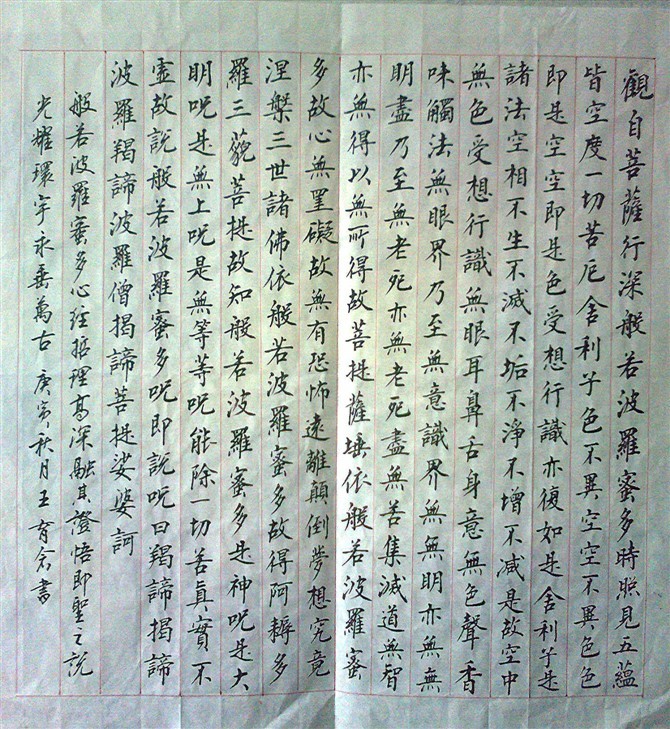 觀自菩薩行深般若波羅蜜多時照見五蘊
皆空度一切苦厄舍利子色不異空空不異色色
即是空空即是色受想行識亦復如是舍利子是
諸法空相不生不滅不垢不淨不增不減是故空中
無色受想行識無眼耳鼻舌身意無色聲香
味觸法無眼界乃至無意識界無無明亦無無
明盡乃至無老死亦無老死盡無苦集滅道無智
亦無得以無所得故菩提薩埵依般若波羅蜜
多故心無罣礙故無有恐怖遠離顛倒夢想究竟
涅槃三世諸佛依般若波羅蜜多故得阿耨多
羅三藐菩提故知般若波羅蜜多是神呪是大
明呪是無上呪是無等等呪能除一切苦真實不
虛故說般若波羅蜜多呪即說呪曰羯諦揭諦
波羅羯諦波羅僧揭諦菩提娑婆訶
般若波羅蜜多心經哲理高深融其證悟即聖之説
光耀環宇永垂萬古 庚寅秋月王育倉書